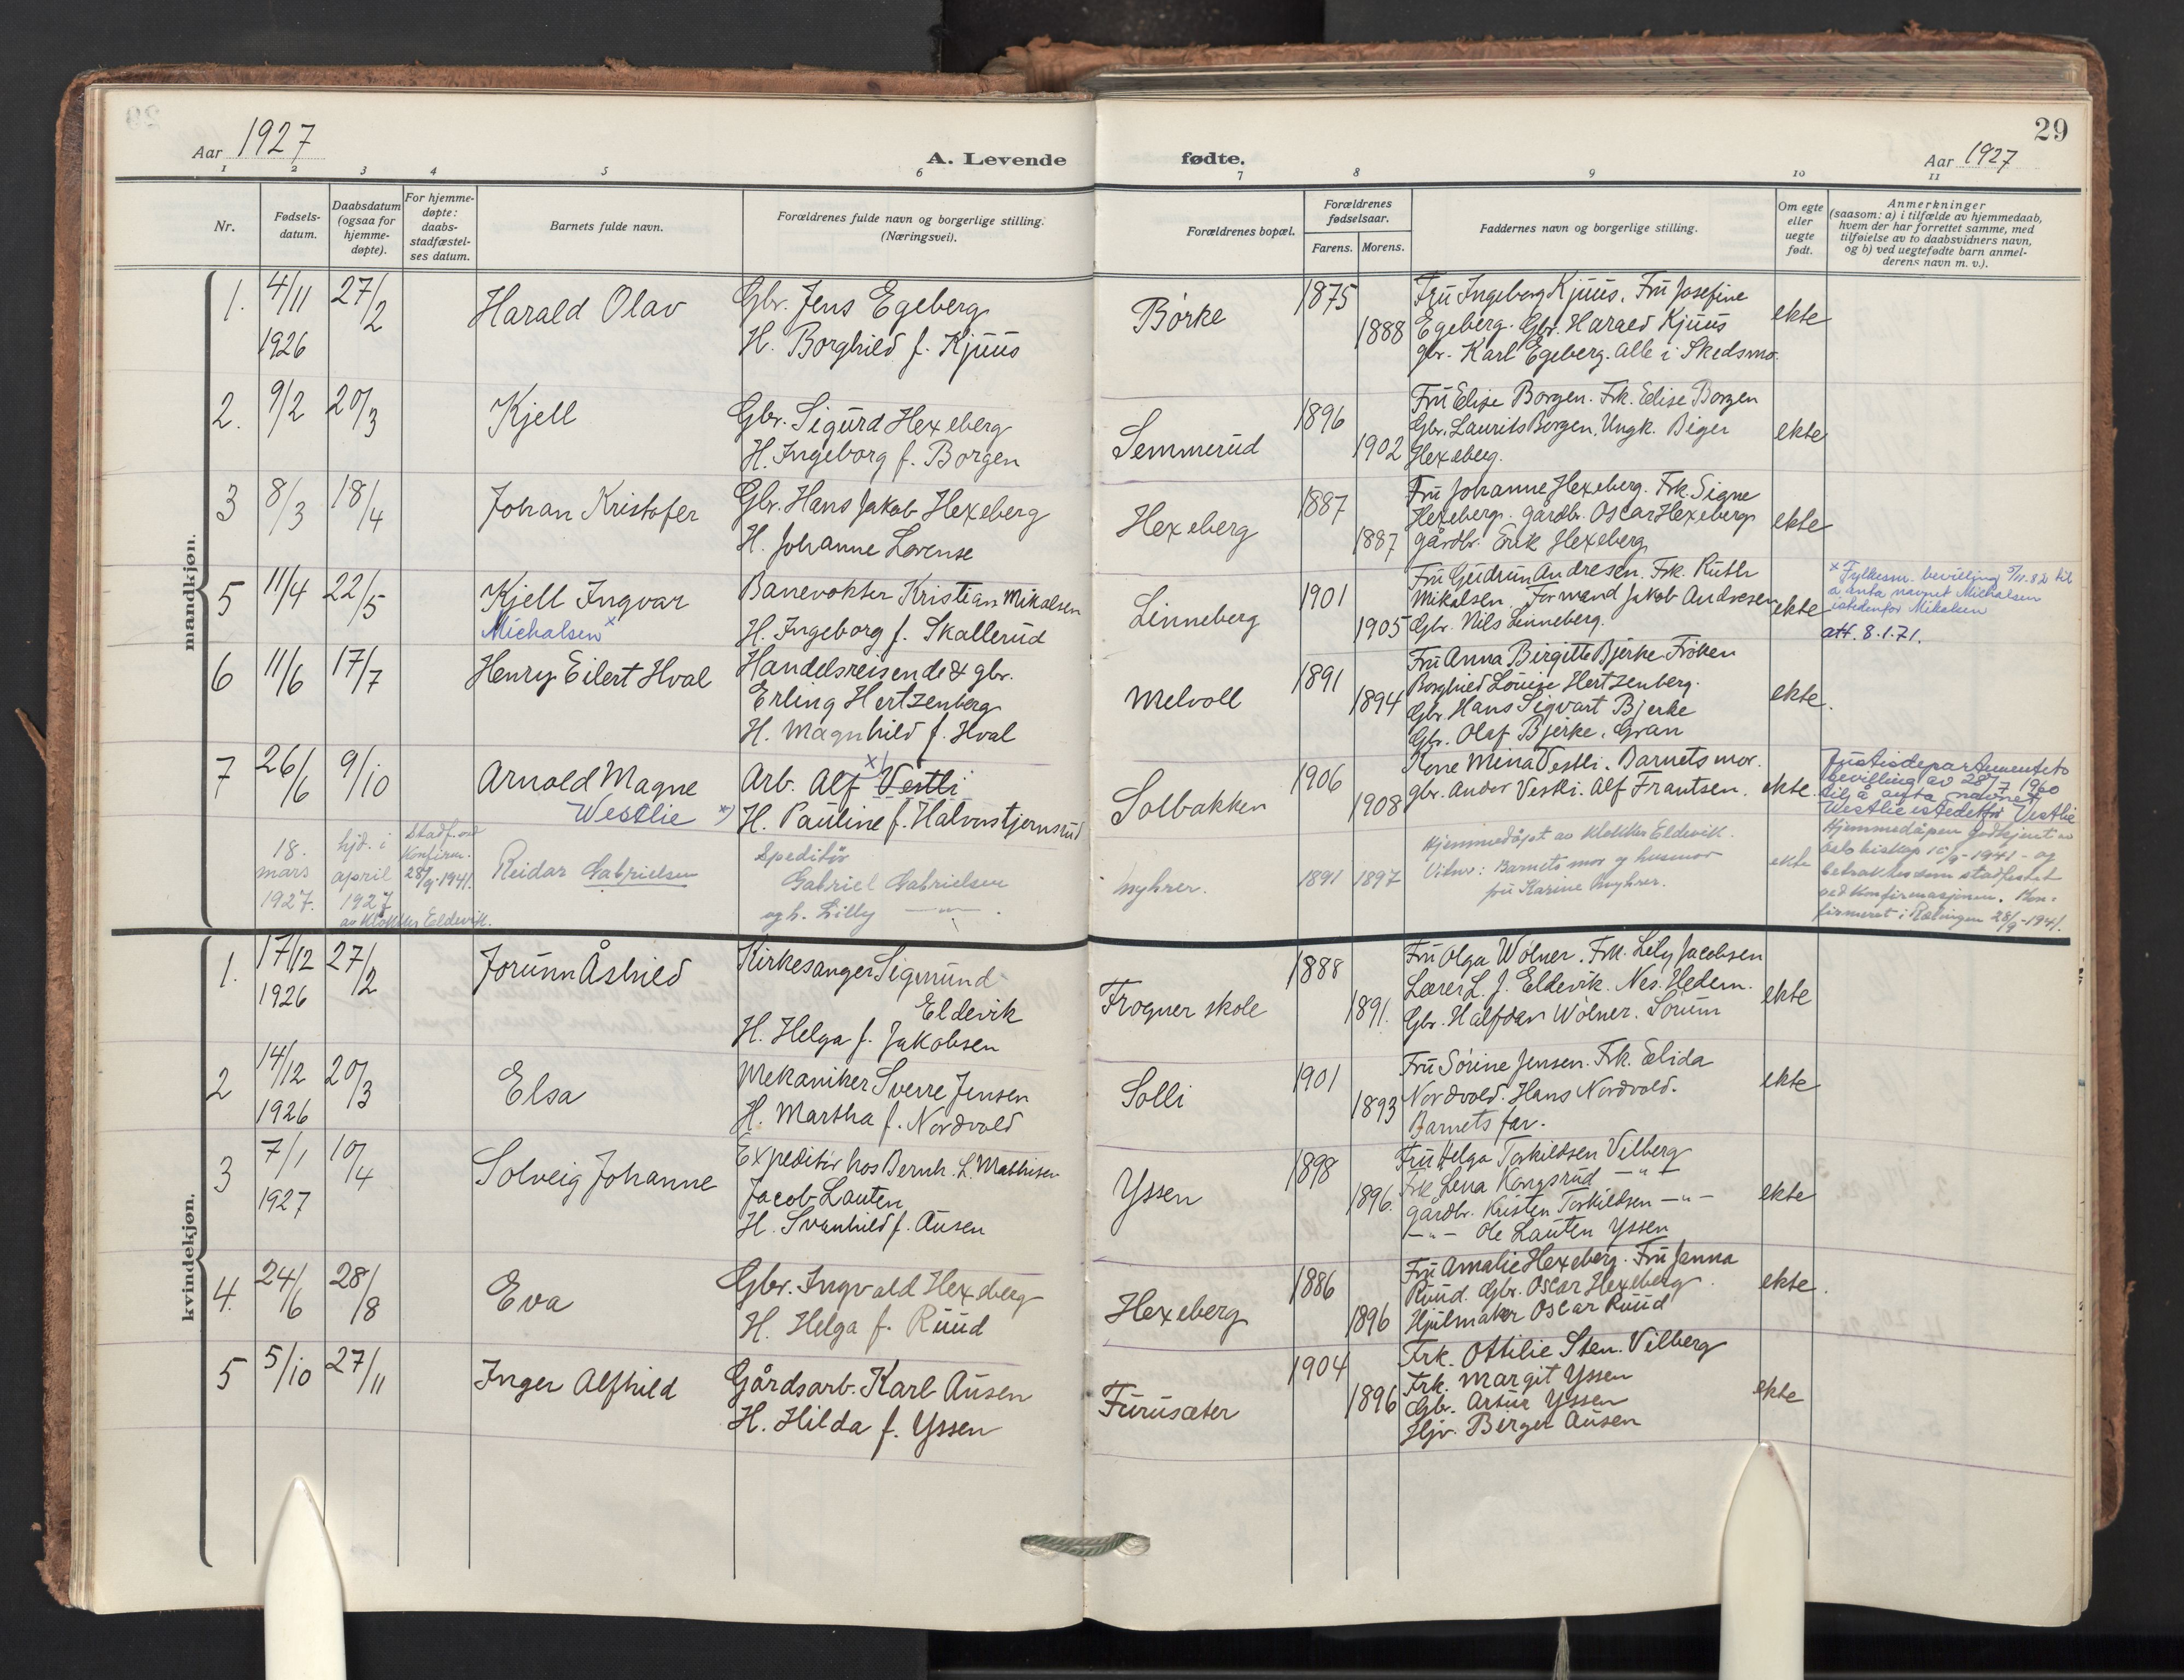 29
Aar 1927
A. Levende
fødte.
Aar 1927
1 2 3 4 5 6 7 8 9 10 11
Nr.
Fødsels-
datum.
Daabsdatum
(ogsaa for
hjemme-
døpte).
For hjemme-
døpte:
daabs-
stadfæstel-
ses datum.
Barnets fulde navn.
Forældrenes fulde navn og borgerlige stilling.
(Næringsvei).
Forældrenes bopæl.
Forældrenes
fødselsaar.
Farens. Morens.
Faddernes navn og borgerlige stilling.
Om egte
eller
uegte
født.
Anmerkninger
(saasom: a) i tilfælde av hjemmedaab,
hvem der har forrettet samme, med
tilføielse av to daabsvidners navn,
og b) ved uegtefødte barn anmel-
derens navn m. v.).
mandkjøn.
1. 4/11 1926 27/2
Harald Olav
Gbr. Jens Egeberg
H. Borghild f. Kjuus
Børke
1875 1888
Fru Ingeborg Kjuus. Fru Josefine
Egeberg. Gbr. Harald Kjuus
gbr. Karl Egeberg. Alle i Skedsmo.
ekte
2. 9/2 20/3
Kjell
Gbr. Sigurd Hexeberg
H. Ingeborg f. Borgen
Semmerud
1896 1902
Fru Elise Borgen. Frk. Elise Borgen
Gbr. Laurits Borgen, Ungk. Biger
Hexeberg.
ekte
3 8/3 18/4
Johan Kristofer
Gbr. Hans Jakob Hexeberg
H. Johanne Lovense
Hexeberg
1887 1887
Fru Johanne Hexeberg. Frk. Signe
Hexeberg. gårdbr. Oscar Hexeberg
gårdbr. Erik Hexeberg
ekte
5 11/4 22/5
Kjell Ingvar
Michalsen x
Banevokter Kristian Mikalsen
H. Ingeborg f. Skallerud
Linneberg
1901 1905
Fru Gudrun Andresen. Frk. Ruth
Mikalsen. Formand Jakob Andresen
Gbr. Nils Linneberg.
ekte
x Fylkesm. bevilling 5/11.82 til
å anta navnet Michalsen
istedenfor Mikalsen
att. 8.1.71.
6 11/6 17/7
Henry Eilert Hval
Handelsreisende & gbr.
Erling Hertzenberg
H. Magnhild f. Hval
Melvoll
1891 1894
Fru Anna Birgitte Bjerke Frøken
Borghild Louise Hertzenberg.
Gbr. Hans Sigvart Bjerke
Gbr. Olaf Bjerke. Gran
ekte.
7 26/6 9/10
Arnold Magne
Westlie x)
Arb. Alf x) Vestli
H. Pauline f. Halvorstjernsrud
Solbakken
1906 1908
Kone Mina Vestli. Barnets mor.
gbr. Andor Vestli. Alf Frantsen.
ekte.
Justisdepartementets
bevilling av 28/7 1960
til å anta navnet
Westlie istedetfor Vestlie
18. mars 1927.
hjd. i april 1927
av klokker Eldevik.
Stadf. ved
Konfirm.
28/9-1941.
Reidar Gabrielsen
Speditør
Gabriel Gabrielsen
og h. Lilly — " — .
Myhrer.
1891 1897
Hjemmedøpt av klokker Eldevik.
Vitner: Barnets mor og husmor
fru Karine Myhrer.
ekte
Hjemmedåpen godkjent av
Oslo biskop 15/9-1941 - og
betraktes som stadfestet
ved konfirmasjonen. Kon-
firmeret i Rælingen 28/9-1941.
kvindekjøn.
1. 17/12 1926 27/2
Jorunn Åshild
Kirkesanger Sigmund
Eldevik
H. Helga f. Jakobsen
Frogner skole
1888 1891.
Fru Olga Wølner. Frk. Lily Jacobsen
Lærer L. J. Eldevik. Nes. Hedem.
Gbr. Halfdan Wølner. Sørum
ekte
2 14/12 1926 20/3
Elsa
Mekaniker Sverre Jensen
H. Martha f. Nordvold
Solli
1901 1893
Fru Sørine Jensen. Frk. Elida
Nordvold. Hans Nordvold.
Barnets far.
ekte
3 7/1 1927 10/4
Solveig Johanne
Expeditør hos Bernh. L. Mathisen
Jacob Lauten
H. Svanhild f. Ausen
Yssen
1898 1896.
Fru Helga Torkildsen Vilberg
Frk Lena Kongsrud — " —
gårdbr. Kristen Torkildsen — " —
— " — Ole Lauten Yssen
ekte
4. 24/6 28/8
Eva
Gbr. Ingvald Hexeberg
H. Helga f. Ruud
Hexeberg
1886 1896
Fru Amalie Hexeberg. Fru Janna
Ruud. Gbr. Oscar Hexeberg.
Hjulmaker Oscar Ruud
ekte.
5 5/10 27/11
Inger Alfhild
Gårdsarb. Karl Ausen
H. Hilda f. Yssen
Furusæter
1904 1896
Frk. Ottilie Sten. Vilberg
Frk. Margit Yssen
Gbr. Artur Yssen
Hjv. Birger Ausen
ekte